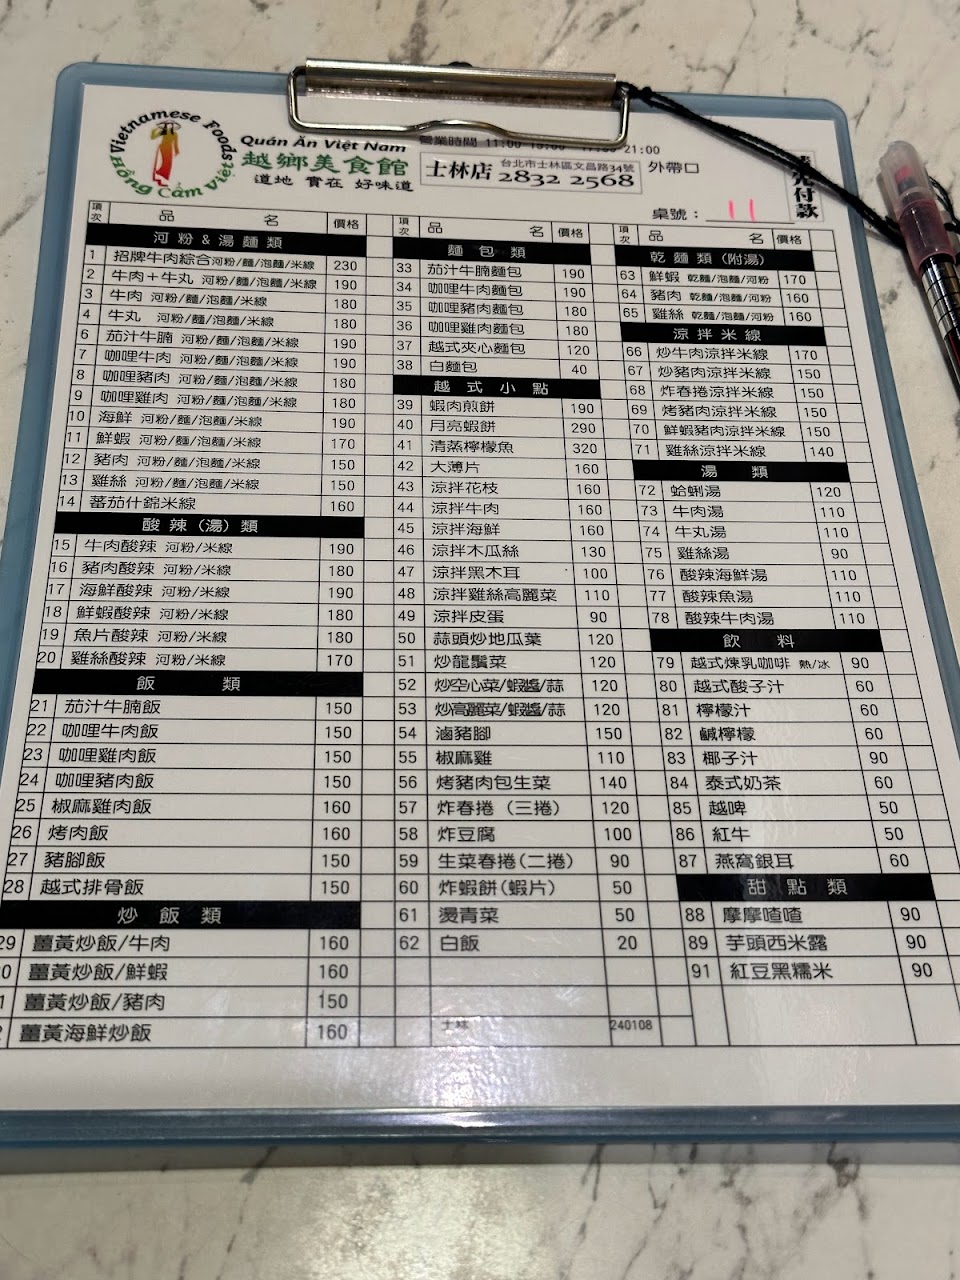 Vietnamese Foods
Hồng Cẩm Việt
Quán Ăn Việt Nam
越鄉美食館
道地 實在 好味道
營業時間 11:00 21:00
士林店 台北市士林區文昌路34號
2832 2568
外帶口
先付款
桌號： 11
項次 品名 價格
河粉&湯麵類
1 招牌牛肉綜合河粉/麵/泡麵/米線 230
2 牛肉+牛丸 河粉/麵/泡麵/米線 190
3 牛肉 河粉/麵/泡麵/米線 180
4 牛丸 河粉/麵/泡麵/米線 180
6 茄汁牛腩 河粉/麵/泡麵/米線 190
7 咖哩牛肉 河粉/麵/泡麵/米線 190
8 咖哩豬肉 河粉/麵/泡麵/米線 180
9 咖哩雞肉 河粉/麵/泡麵/米線 180
10 海鮮 河粉/麵/泡麵/米線 190
11 鮮蝦 河粉/麵/泡麵/米線 170
12 豬肉 河粉/麵/泡麵/米線 150
13 雞絲 河粉/麵/泡麵/米線 150
14 蕃茄什錦米線 160
酸辣（湯）類
15 牛肉酸辣 河粉/米線 190
16 豬肉酸辣 河粉/米線 180
17 海鮮酸辣 河粉/米線 190
18 鮮蝦酸辣 河粉/米線 180
19 魚片酸辣 河粉/米線 180
20 雞絲酸辣 河粉/米線 170
飯類
21 茄汁牛腩飯 150
22 咖哩牛肉飯 150
23 咖哩雞肉飯 150
24 咖哩豬肉飯 150
25 椒麻雞肉飯 160
26 烤肉飯 160
27 豬腳飯 150
28 越式排骨飯 150
炒飯類
29 薑黃炒飯/牛肉 160
0 薑黃炒飯/鮮蝦 160
1 薑黃炒飯/豬肉 150
薑黃海鮮炒飯 160
項次 品名 價格
麵包類
33 茄汁牛腩麵包 190
34 咖哩牛肉麵包 190
35 咖哩豬肉麵包 180
36 咖哩雞肉麵包 180
37 越式夾心麵包 120
38 白麵包 40
越式小點
39 蝦肉煎餅 190
40 月亮蝦餅 290
41 清蒸檸檬魚 320
42 大薄片 160
43 涼拌花枝 160
44 涼拌牛肉 160
45 涼拌海鮮 160
46 涼拌木瓜絲 130
47 涼拌黑木耳 100
48 涼拌雞絲高麗菜 110
49 涼拌皮蛋 90
50 蒜頭炒地瓜葉 120
51 炒龍鬚菜 120
52 炒空心菜/蝦醬/蒜 120
53 炒高麗菜/蝦醬/蒜 120
54 滷豬腳 150
55 椒麻雞 110
56 烤豬肉包生菜 140
57 炸春捲（三捲） 120
58 炸豆腐 100
59 生菜春捲(二捲) 90
60 炸蝦餅(蝦片) 50
61 燙青菜 50
62 白飯 20
士林 240108
項次 品名 價格
乾麵類（附湯）
63 鮮蝦 乾麵/泡麵/河粉 170
64 豬肉 乾麵/泡麵/河粉 160
65 雞絲 乾麵/泡麵/河粉 160
涼拌米線
66 炒牛肉涼拌米線 170
67 炒豬肉涼拌米線 150
68 炸春捲涼拌米線 150
69 烤豬肉涼拌米線 150
70 鮮蝦豬肉涼拌米線 150
71 雞絲涼拌米線 140
湯類
72 蛤蜊湯 120
73 牛肉湯 110
74 牛丸湯 110
75 雞絲湯 90
76 酸辣海鮮湯 110
77 酸辣魚湯 110
78 酸辣牛肉湯 110
飲料
79 越式煉乳咖啡 熱/冰 90
80 越式酸子汁 60
81 檸檬汁 60
82 鹹檸檬 60
83 椰子汁 90
84 泰式奶茶 60
85 越啤 50
86 紅牛 50
87 燕窩銀耳 60
甜點類
88 摩摩喳喳 90
89 芋頭西米露 90
91 紅豆黑糯米 90